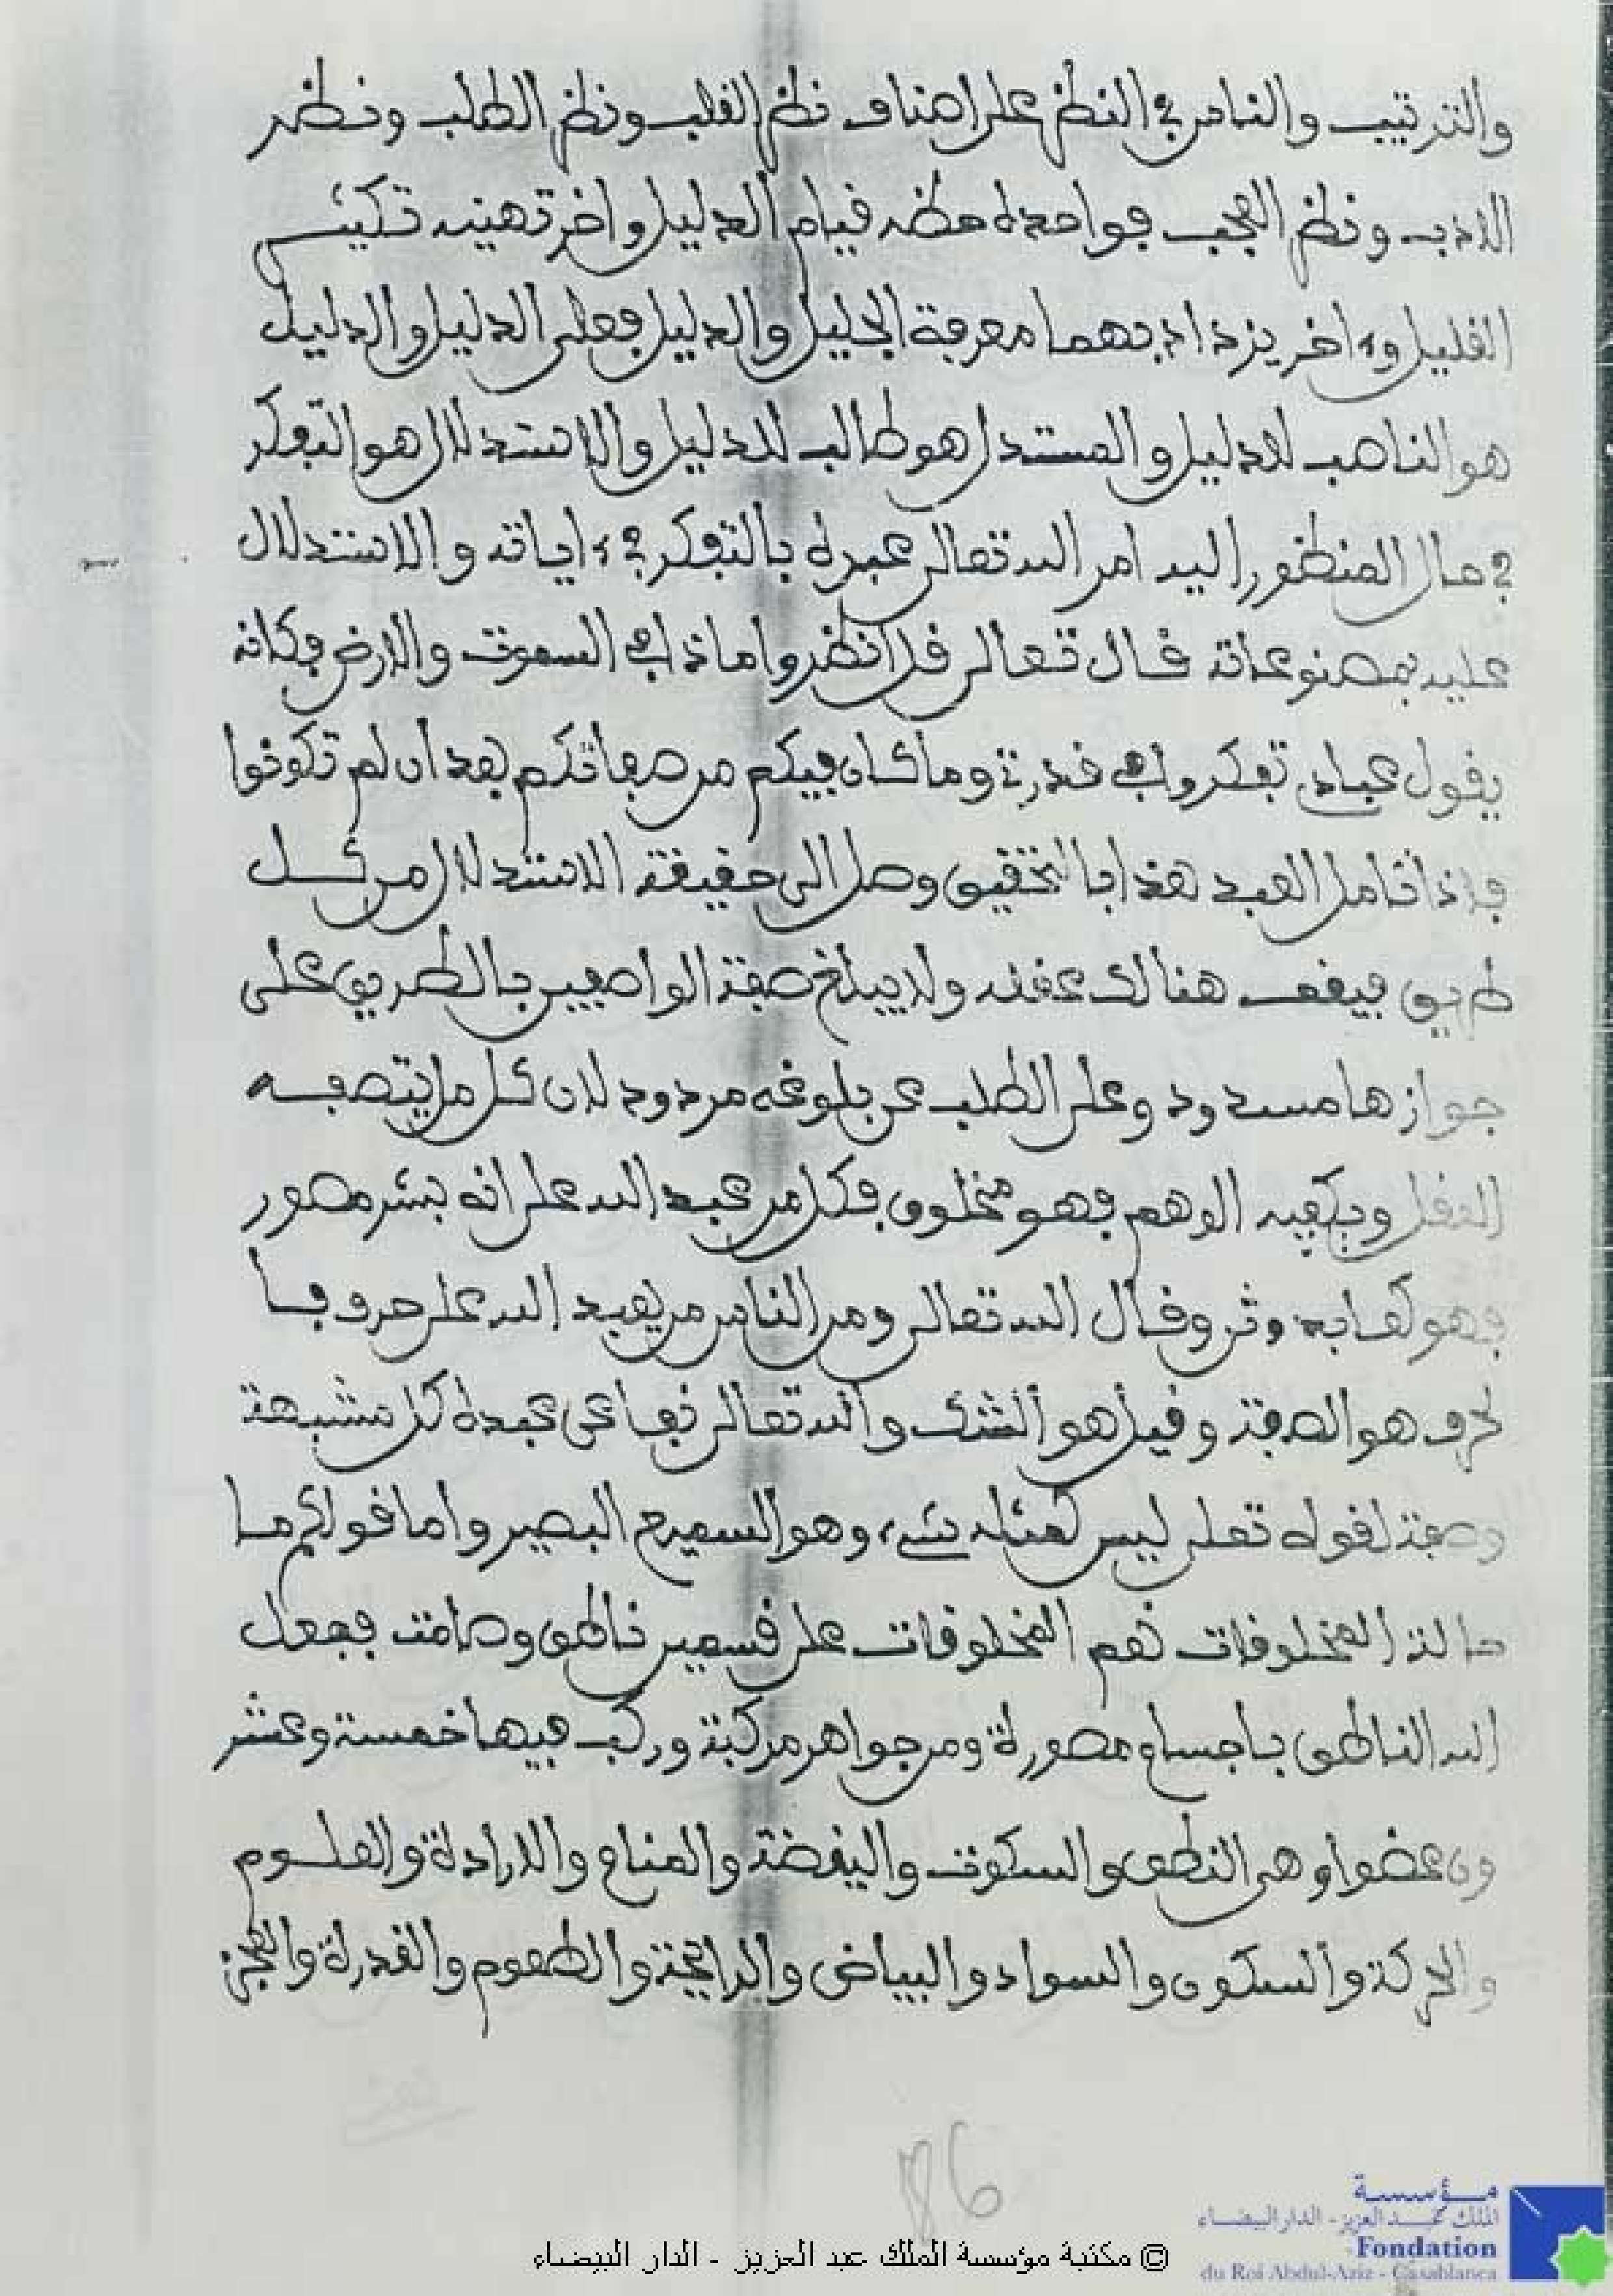 والترتيب والناس في النظر على اصناف نظر القلب ونظر الطلب ونظر
الادب ونظر العجب فواحده حظه قيام الدليل واخر تهينه تكثير
القليل وءاخر يزداد بهما معرفة الجليل والدليل فعلى الدليل والدليل
هو الناصب للدليل والمستدل هو طالب للدليل والاستدلال هو التفكر
في حال المنظور اليه امر الله تعالى عبده بالتفكر في ءاياته والاستدلال
عليه بمصنوعاته فقال تعالى قل انظروا ماذا في السموت والارض فكانه
يقول عبادي تفكروا في قدرتي وما كان فيكم من صفاتكم بعد ان لم تكونوا
فاذا تامل العبد هذا بالتحقيق وصل الى حقيقة الاستدلال من كل
طريق فيقف هنالك عقله ولا يبلغ صفة الواصفين بالطريق على
جوازها مسدود وعلى الطلب عن بلوغه مردود لان كل ما يتصفه
العقل ويكفيه الوهم فهو مخلوق فكل من عبد الله على انه بشر مصور
فهو كعابد وثن وقال الله تعالى ومن الناس من يعبد الله على حرف فا
لحرف هو الصفة وقيل هو الشك والله تعالى نفا عن عبده كل مشبهة
وصفة لقوله تعلى ليس كمثله شيء وهو السميع البصير واما قولكم ما
حالة المخلوقات نعم المخلوقات على قسمين ناطق وصامت فجعل
الله الناطق باجسام مصورة ومن جواهر مركبة وركب فيها خمسة وعشر
ون عضوا وهي النطق والسكوت واليقضة والمنام والارادة والعلوم
والحركة والسكون والسواد والبياض والرايحة والطعوم والقدرة والعجز
86
مؤسسة
الملك عبد العزيز - الدار البيضاء
Fondation
du Roi Abdul-Aziz - Casablanca
© مكتبة مؤسسة الملك عبد العزيز - الدار البيضاء